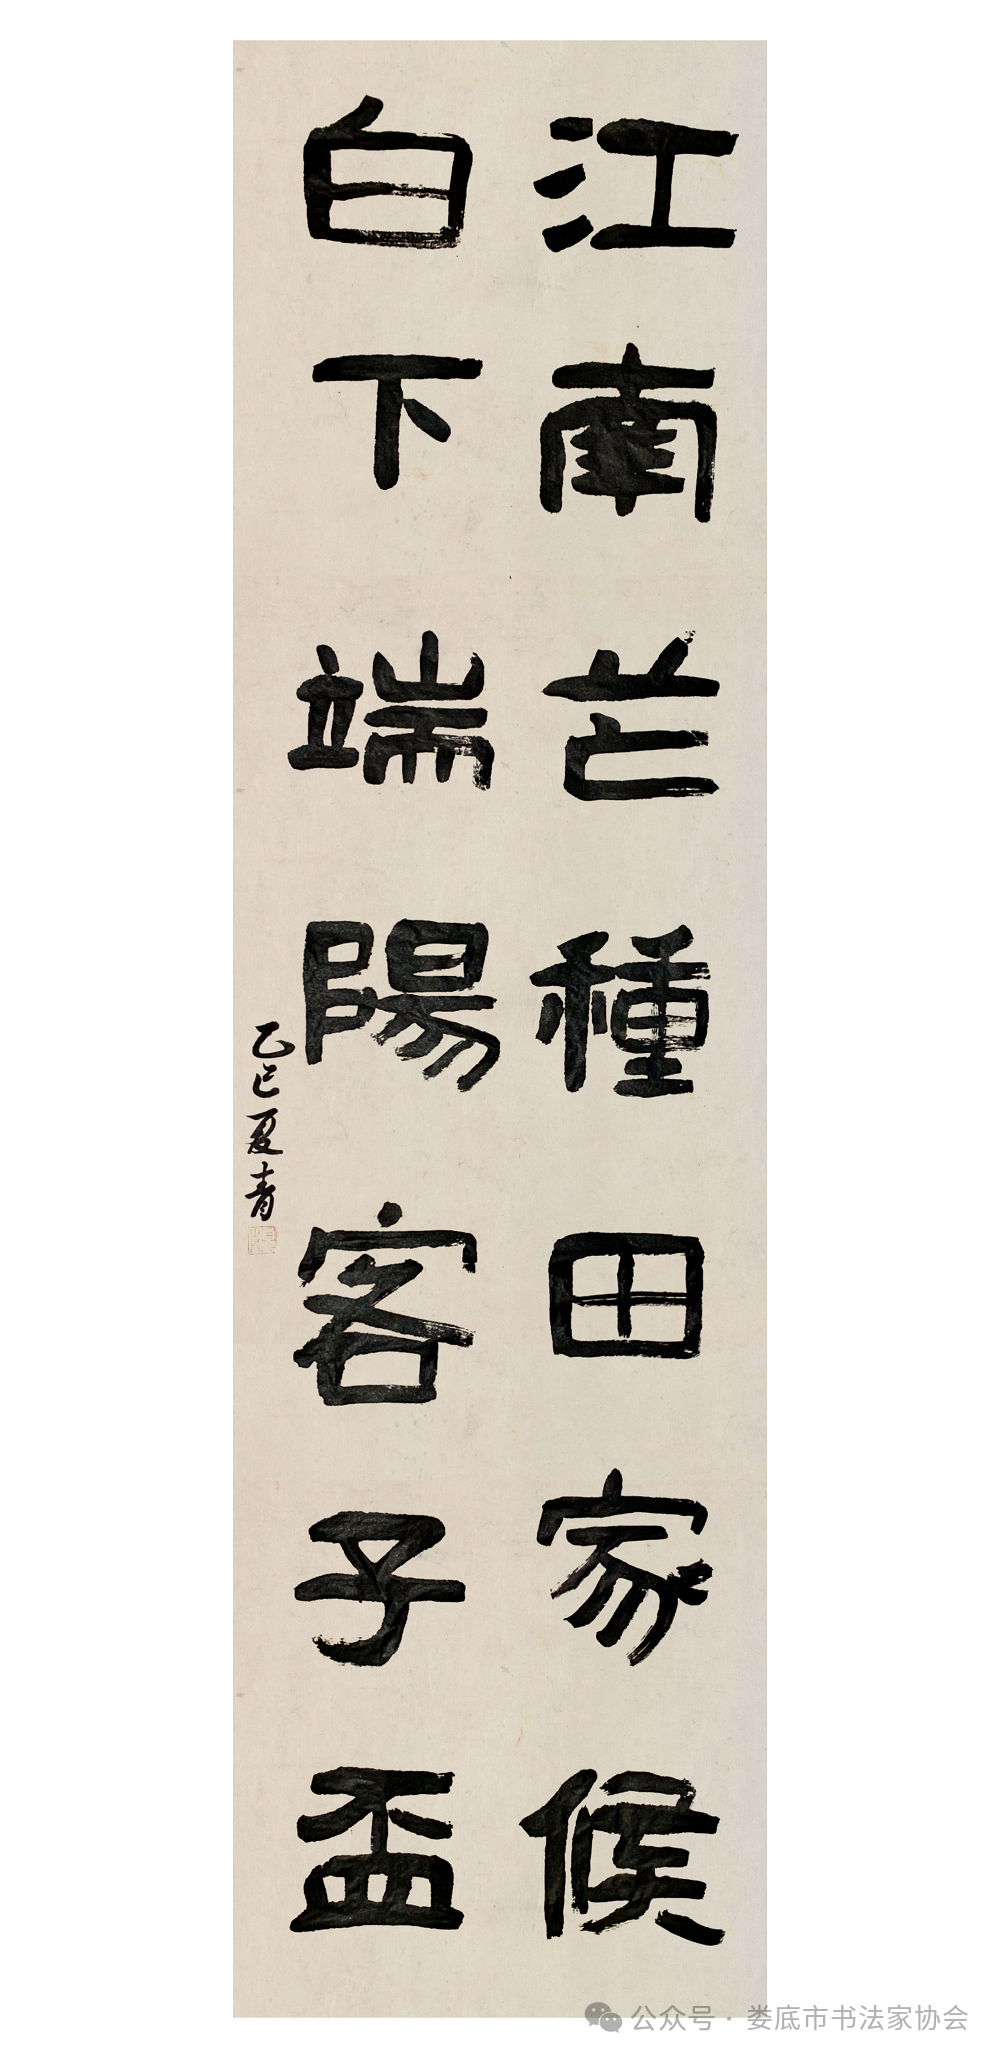 江南芒種田家候
白下端陽客子盃
乙巳夏青
公众号 · 娄底市书法家协会